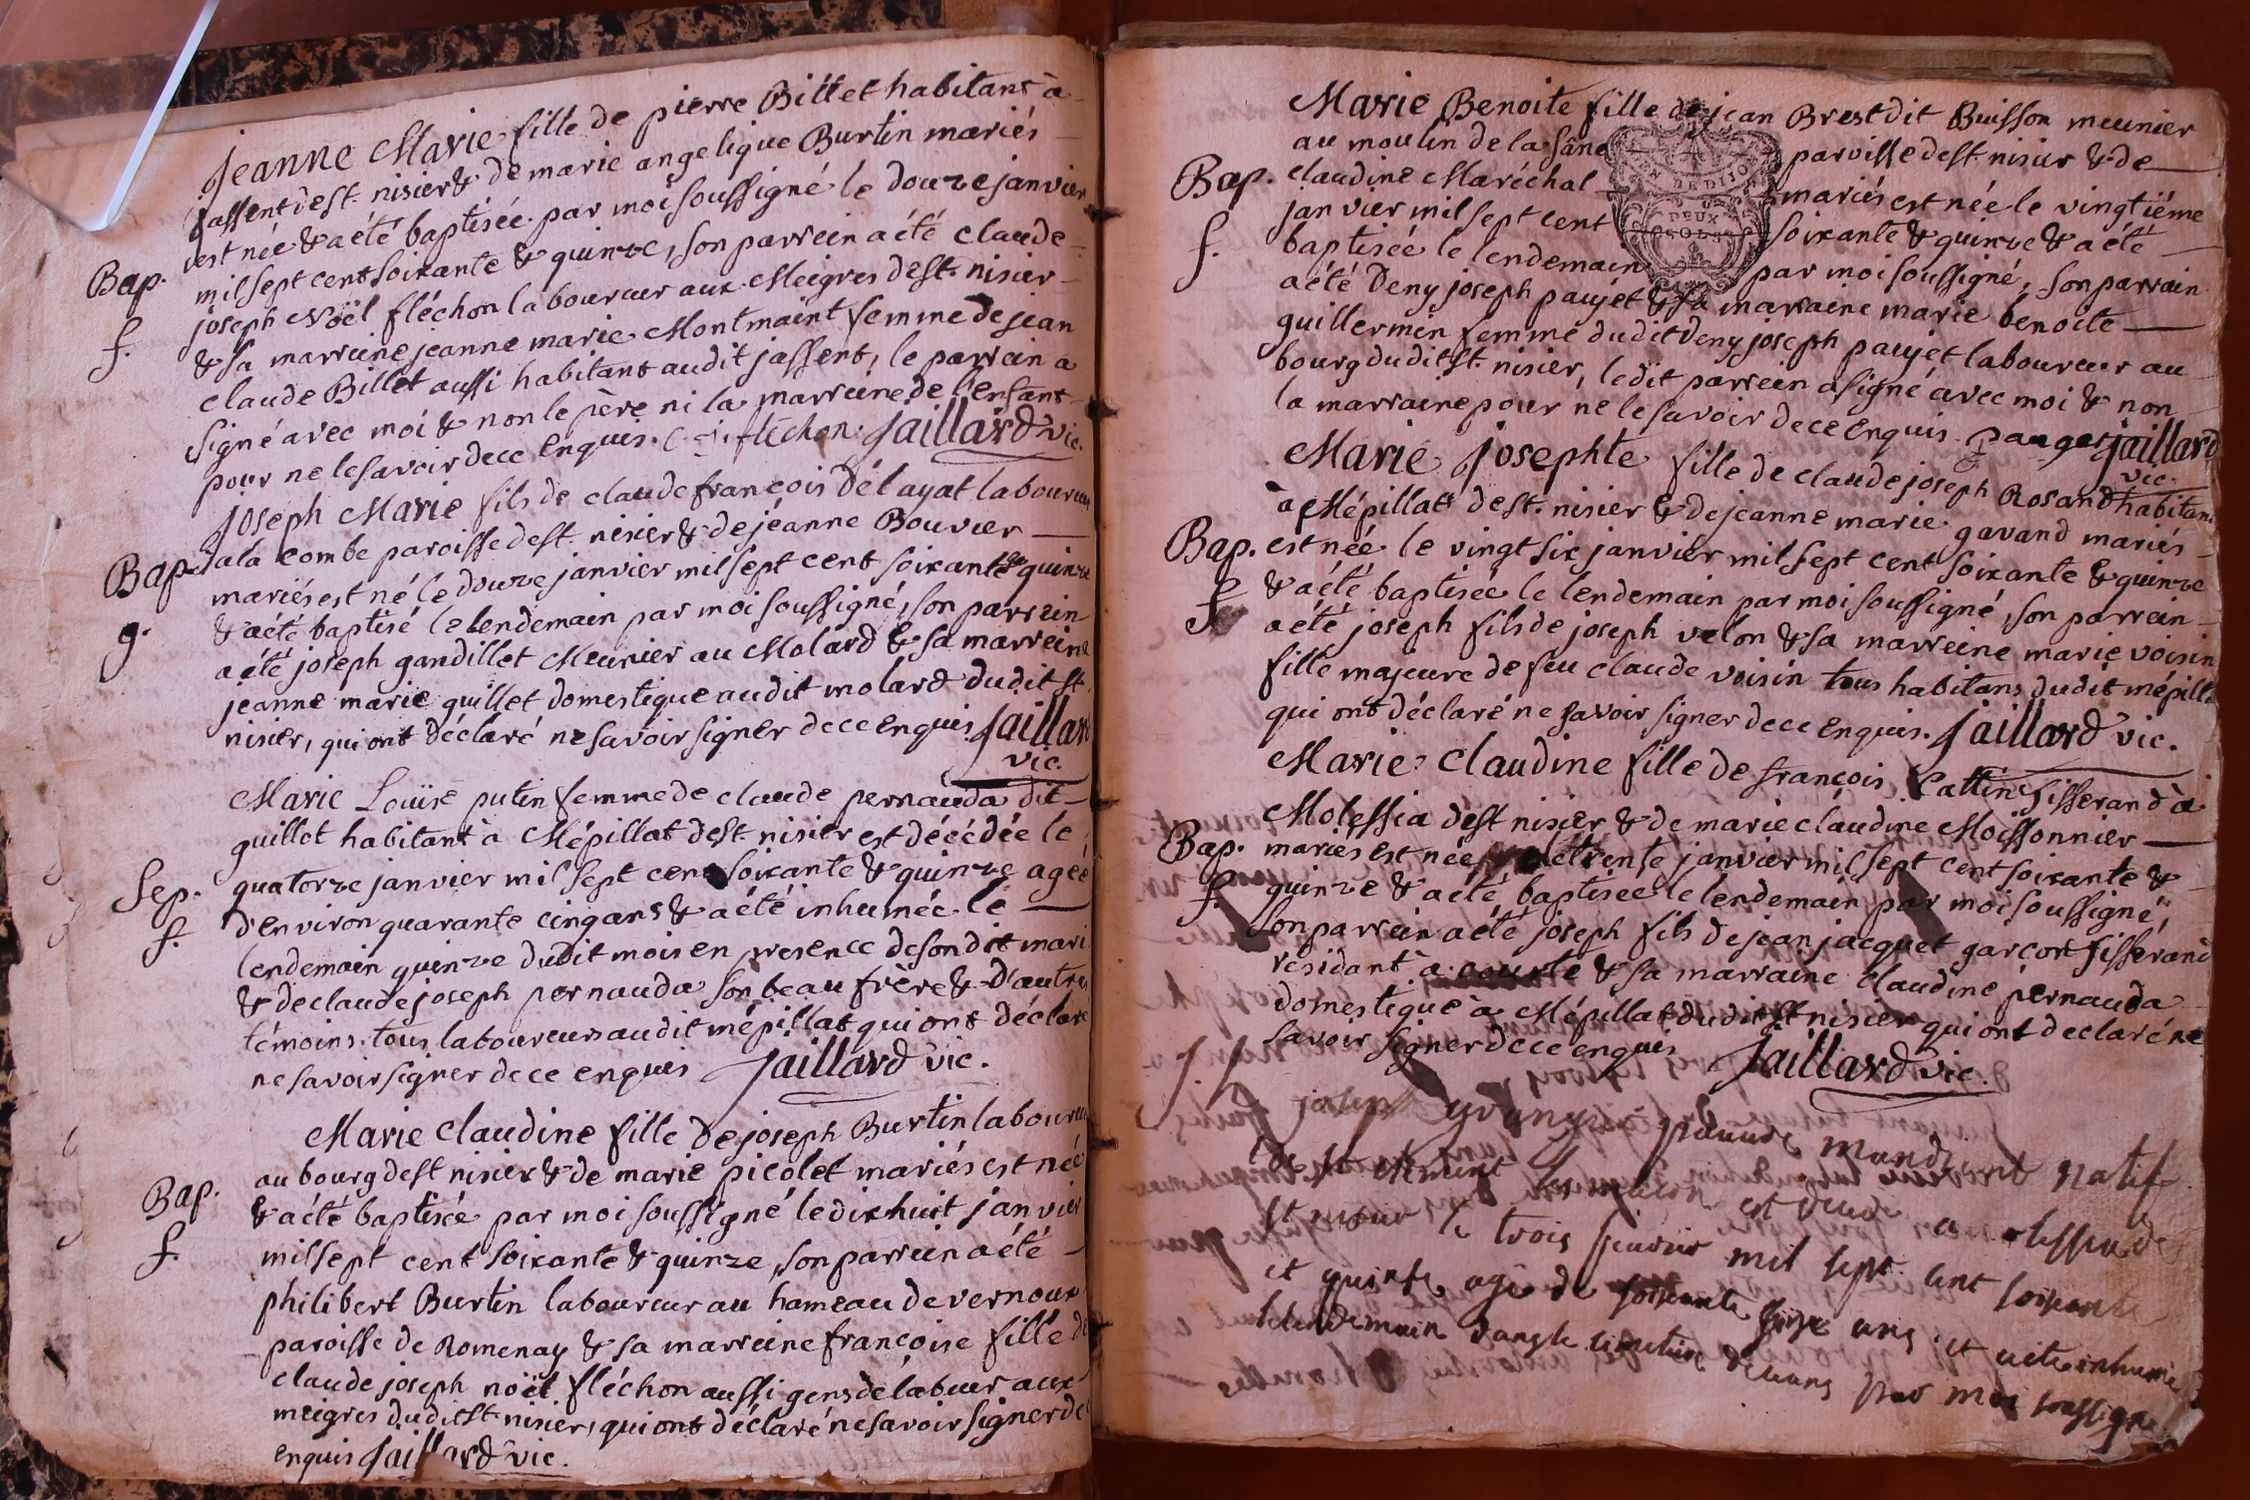 Jeanne Marie fille de pierre Billet habitant à
jassent de st. nisier & de marie angelique Burtin mariés
est née & a été baptisée par moi soussigné le douze janvier
Bap. mil sept cent soixante & quinze, son parrein a été claude
joseph Noël fléchon laboureur aux Meigres de st. nisier
f. & sa marreine jeanne marie Montmaint femme de jean
claude Billet aussi habitant audit jassent, le parrein a
signé avec moi & non le père ni la marreine de l'enfant
pour ne le savoir de ce enquis. fléchon. Jaillard vic.
Joseph Marie fils de claude françois délayat laboureur
Bap. à la combe paroisse de st. nisier & de jéanne Bouvier
mariés est né le douze janvier mil sept cent soixante & quinze
g. & a été baptisé le lendemain par moi soussigné, son parrein
a été joseph gandillet Meunier au Molard & sa marreine
jeanne marie guillet domestique audit molard dudit st.
nisier, qui ont déclaré ne savoir signer de ce enquis Jaillard
vic.
Marie Louise putin femme de claude pernauda dit
guillot habitant à Mépillat de st. nisier est décédée le
Sep. quatorze janvier mil sept cent soixante & quinze agée
f. d'environ quarante cinq ans & a été inhumée le
lendemain quinze dudit mois en presence de son dit mari
& de claude joseph pernauda son beau frère & d'autres
témoins tous laboureurs audit mépillat qui ont déclaré
ne savoir signer de ce enquis Jaillard vic.
Marie Claudine fille de joseph Burtin laboureur
au bourg de st nisier & de marie picolet mariés est née
Bap. & a été baptisée par moi soussigné le dix huit janvier
f. mil sept cent soixante & quinze, son parrein a été
philibert Burtin laboureur au hameau de vernoux
paroisse de Romenay & sa marreine françoise fille de
claude joseph noël fléchon aussi gens de labeur aux
meigres dudit st. nisier, qui ont déclaré ne savoir signer de
enquis Jaillard vic.
Marie Benoite fille de jean Brest dit Buisson meunier
au moulin de la sâne paroisse de st. nisier & de
Bap. claudine Maréchal mariés est née le vingtiéme
janvier mil sept cent soixante & quinze & a été
f. baptisée le lendemain par moi soussigné, son parrain
a été Deny joseph paujet & sa marraine marie benoite
guillermin femme dudit Deny joseph paujet laboureur au
bourg dudit st. nisier, ledit parrein a signé avec moi & non
la marraine pour ne le savoir de ce enquis. pauget Jaillard
vic.
Marie Josephte fille de claude joseph Rosand habitant
à Mépillat de st. nisier & de jeanne marie gavand mariés
Bap. est née le vingt six janvier mil sept cent soixante & quinze
f. & a été baptisée le lendemain par moi soussigné, son parrein
a été joseph fils de joseph velon & sa marreine marie voisin
fille majeure de feu claude voisin tous habitans dudit mépillat
qui ont déclaré ne savoir signer de ce enquis. Jaillard vic.
Marie Claudine fille de françois Cattin tisserand à
Molessia de st nisier & de marie claudine Moissonnier
Bap. mariés est née le trente janvier mil sept cent soixante &
f. quinze & a été baptisée le lendemain par moi soussigné,
son parrein a été joseph fils de jean jacquet garçon tisserand
résidant à & sa marraine claudine pernauda
domestique à Mépillat dudit st nisier qui ont declaré ne
savoir signer de ce enquis Jaillard vic.
joseph pauvre mandient natif
de st clement est decede a
st le trois fevrier mil sept cent soixante
et quinse age de soixante ans et a ete inhumé
le lendemain par moi soussigné
DE DIJON
DEUX
SOLS